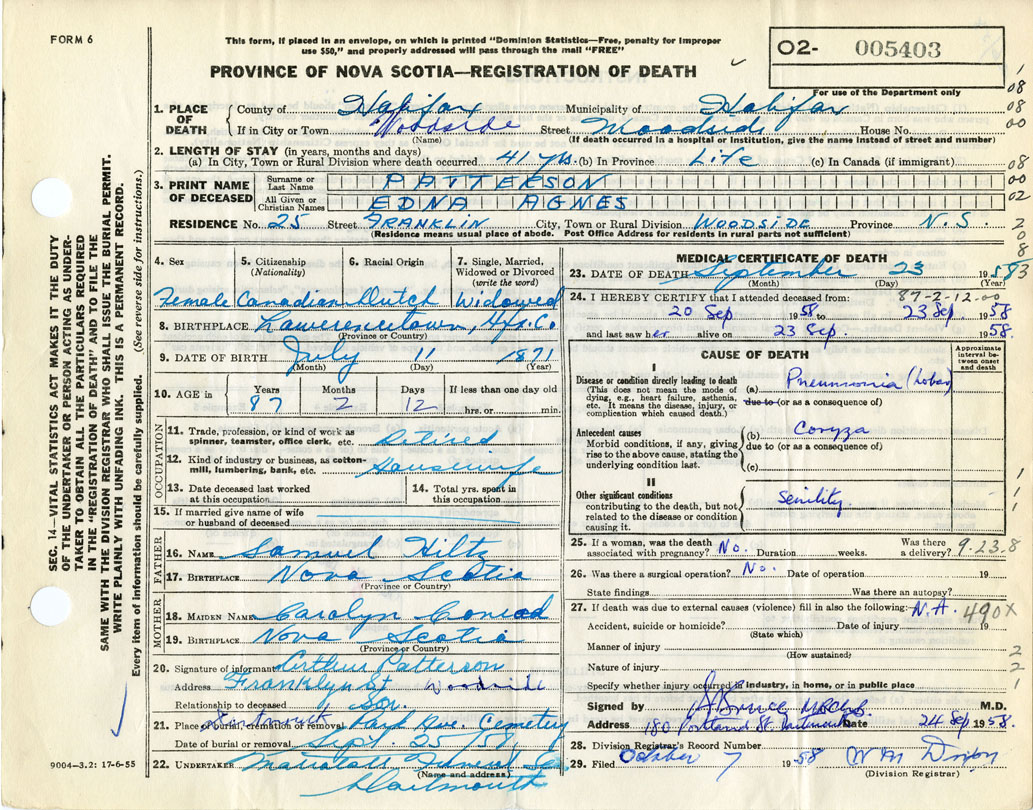 FORM 6
This form, if placed in an envelope, on which is printed "Dominion Statistics—Free, penalty for improper
use $50," and properly addressed will pass through the mail "FREE"
PROVINCE OF NOVA SCOTIA—REGISTRATION OF DEATH
O2- 005403
For use of the Department only
1. PLACE OF DEATH County of Halifax Municipality of Halifax
If in City or Town Woodside Street Woodside House No.
(Name) (If death occurred in a hospital or institution, give the name instead of street and number)
2. LENGTH OF STAY (in years, months and days)
(a) In City, Town or Rural Division where death occurred 41 yrs. (b) In Province Life (c) In Canada (if immigrant)
3. PRINT NAME OF DECEASED Surname or Last Name PATTERSON
All Given or Christian Names EDNA AGNES
RESIDENCE No. 25 Street FRANKLIN City, Town or Rural Division WOODSIDE Province N.S.
(Residence means usual place of abode. Post Office Address for residents in rural parts not sufficient)
4. Sex 5. Citizenship (Nationality) 6. Racial Origin 7. Single, Married, Widowed or Divorced (write the word)
Female Canadian Dutch Widowed
8. BIRTHPLACE Lawerencetown, Hfx. Co.
(Province or Country)
9. DATE OF BIRTH July 11 1871
(Month) (Day) (Year)
10. AGE in Years Months Days If less than one day old
87 2 12 hrs. or min.
OCCUPATION
11. Trade, profession, or kind of work as spinner, teamster, office clerk, etc. Retired
12. Kind of industry or business, as cotton-mill, lumbering, bank, etc. Housewife
13. Date deceased last worked at this occupation
14. Total yrs. spent in this occupation
15. If married give name of wife or husband of deceased
FATHER
16. NAME Samuel Hiltz
17. BIRTHPLACE Nova Scotia
(Province or Country)
MOTHER
18. MAIDEN NAME Carolyn Conrad
19. BIRTHPLACE Nova Scotia
(Province or Country)
20. Signature of informant Arthur Patterson
Address Franklyn St Woodside
Relationship to deceased Son.
21. Place of burial, cremation or removal Dartmouth Park Ave. Cemetery
Date of burial or removal Sept 25/58
22. UNDERTAKER Funeral
(Name and address)
Dartmouth
9004—3.2: 17-6-55
MEDICAL CERTIFICATE OF DEATH
23. DATE OF DEATH September 23 1958
(Month) (Day) (Year)
24. I HEREBY CERTIFY that I attended deceased from: 87-2-12-00
20 Sep 1958 to 23 Sep 1958
and last saw her alive on 23 Sep. 1958.
CAUSE OF DEATH
Approximate interval between onset and death
I
Disease or condition directly leading to death (a) Pneumonia (Lobar)
(This does not mean the mode of dying, e.g., heart failure, asthenia, etc. It means the disease, injury, or complication which caused death.)
due to (or as a consequence of)
Antecedent causes (b) Coryza
Morbid conditions, if any, giving rise to the above cause, stating the underlying condition last.
due to (or as a consequence of)
(c)
II
Other significant conditions contributing to the death, but not related to the disease or condition causing it.
Senility
25. If a woman, was the death associated with pregnancy? No. Duration weeks. Was there a delivery? 9.23.8
26. Was there a surgical operation? No. Date of operation 19
State findings Was there an autopsy?
27. If death was due to external causes (violence) fill in also the following: N.A. 490X
Accident, suicide or homicide? Date of injury 19
(State which)
Manner of injury
(How sustained)
Nature of injury
Specify whether injury occurred in industry, in home, or in public place
Signed by M.D.
Address 180 Portland St. Dartmouth Date 24 Sep 1958.
28. Division Registrar's Record Number
29. Filed October 7 1958 W M Dixon
(Division Registrar)
SEC. 14—VITAL STATISTICS ACT MAKES IT THE DUTY
OF THE UNDERTAKER OR PERSON ACTING AS UNDER-
TAKER TO OBTAIN ALL THE PARTICULARS REQUIRED
IN THE "REGISTRATION OF DEATH" AND TO FILE THE
SAME WITH THE DIVISION REGISTRAR WHO SHALL ISSUE THE BURIAL PERMIT.
WRITE PLAINLY WITH UNFADING INK. THIS IS A PERMANENT RECORD.
Every item of information should be carefully supplied. (See reverse side for instructions.)
1
08
08
00
08
00
02
2
0
8
83
1
1
1
2
2
1